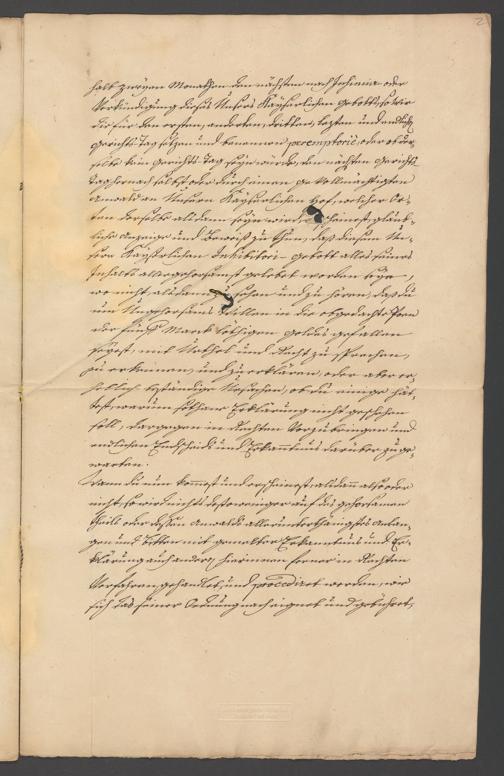 halb zweyen Monathen den nächsten nach Insinuir- oder
Verkündigung dieses Unsers Kayserlichen gebotts, so wir
dir für den ersten, anderten, dritten, letzten und endlichen
gerichts Tag setzen und benennen peremptoriè, oder ob der-
selbe kein gerichts Tag seyn würde, den nächsten gerichts
Tag hernach selbst oder durch einen gevollmächtigten
Anwald an Unserm Kayserlichen Hof, welcher Or-
ten derselbe alsdann seyn wird, erscheinest, glaub-
liche Anzeige und Beweiß zu thun, daß diesem Un-
serm Kayserlichen Inhibitori- gebott alles seines
Inhalts allergehorsamst gelebet worden seye,
wo nicht, alsdann zu sehen und zu hören, daß du
um Ungehorsams Willen in die obgedachte Pœn
der fünff Marck löthigen goldes gefallen
seyest, mit Urthel und Recht zu sprechen,
zu erkennen, und zu erklären, oder aber er-
hebliche beständige Ursachen, ob du einige hät-
test, warum solchane Erklärung nicht geschehen
soll, dargegen in Rechten Vorzubringen und
endlichen Entscheids und Erkanntnus darüber zu ge-
warten.
Wann du nun kommest und erscheinest alsdann also oder
nicht, so wird nichts destoweniger auf des gehorsamen
theils oder dessen Anwalds allerunterthänigstes Anlan-
gen und bitten mit gemelter Erkanntnus und Er-
klärung auch anders hierinnen ferner in Rechten
Verfahren, gehandlet, und procediret werden, wie
sich das seiner Ordnung nach eignet und gebühret,